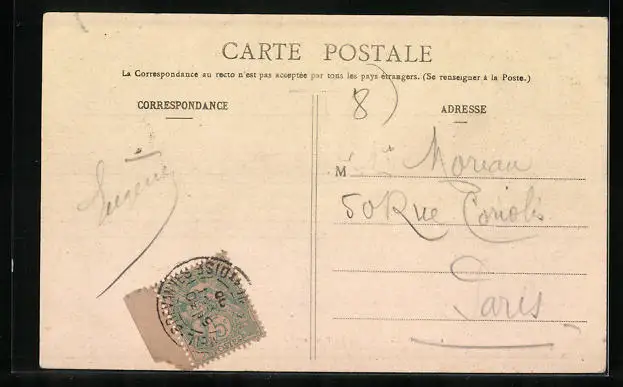 CARTE POSTALE
La Correspondance au recto n'est pas acceptée par tous les pays étrangers. (Se renseigner à la Poste.)
CORRESPONDANCE
ADRESSE
8)
M Moreau
50 Rue Coriolis
Paris
Eugène
5